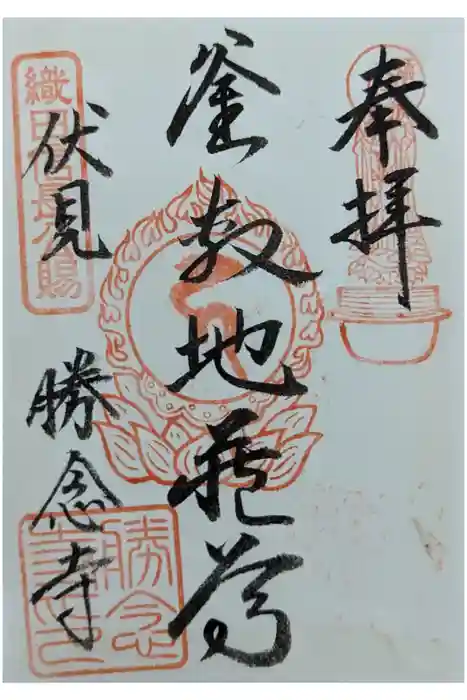 奉拝
釜敷地蔵尊
織田信長公賜
伏見
勝念寺
勝念寺印